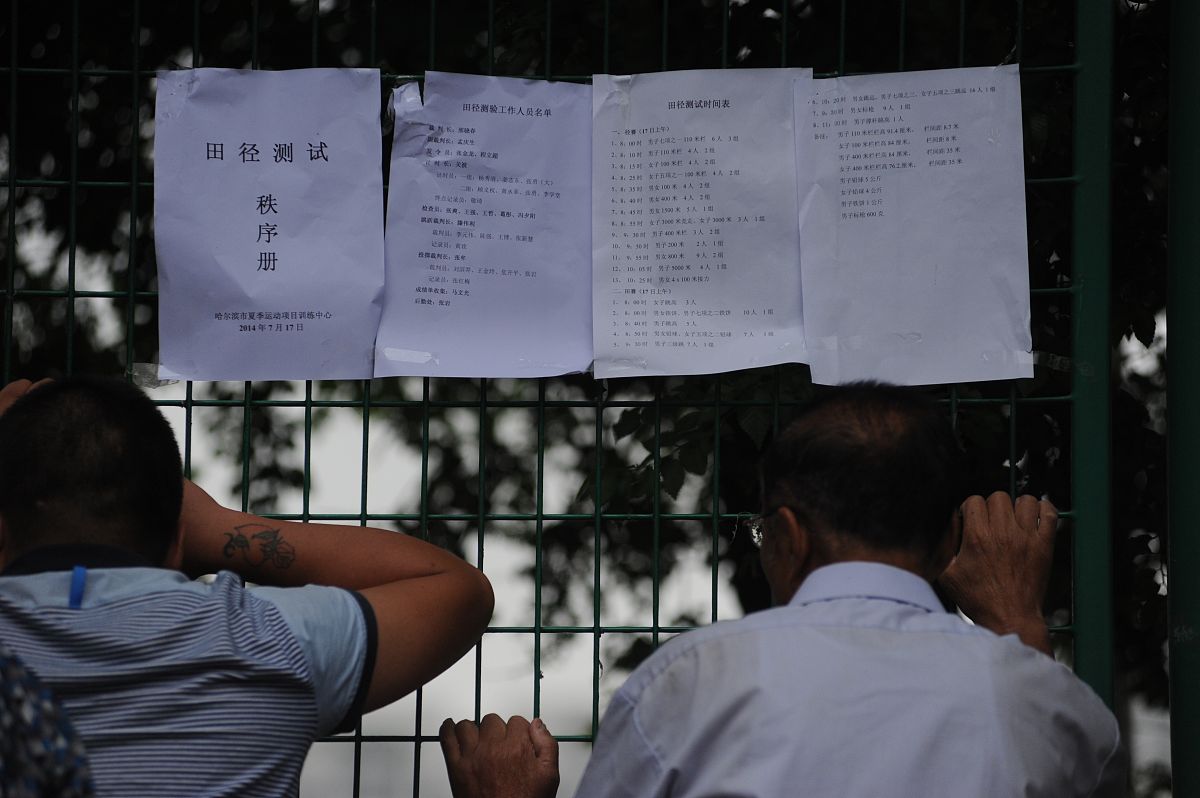 田径测试
秩
序
册
哈尔滨市夏季运动项目训练中心
2014年7月17日
田径测验工作人员名单
裁判长：邢晓春
副裁判长：孟庆生
发令员：张金龙、程立超
计时长：关颖
终点记录员：敬琦
跳跃裁判长：滕伟利
记录员：黄佳
投掷裁判长：张牟
记录员：张红梅
成绩单收集：马文光
后勤处：张岩
田径测试时间表
一、径赛（17日上午）
1、8：00时 男子七项之一110米栏 6人 3组
2、8：10时 男子110米栏 4人 2组
3、8：15时 女子100米栏 4人 2组
4、8：25时 女子五项之一100米栏 4人 2组
5、8：35时 男女100米 4人 2组
6、8：40时 男女400米 4人 2组
7、8：45时 男女1500米 5人 1组
8、8：55时 女子3000米竞走、女子3000米 3人 1组
9、9：30时 男子400米栏 3人 2组
10、9：50时 男子200米 2人 1组
11、9：55时 男女800米 9人 2组
12、10：05时 男子5000米 4人 1组
13、10：25时 男女4x100米接力
二、田赛（17日上午）
1、8：00时 女子跳高 3人
2、8：00时 男女铁饼、男子七项之二铁饼 10人 1组
3、8：40时 男子跳高 5人
4、8：50时 男女铅球、女子五项之二铅球 7人 1组
5、9：30时 男子三级跳 7人 1组
6、10：20时 男女跳远、男子七项之三、女子五项之三跳远 16人 1组
7、9：50时 男女标枪 9人 1组
8、11：00时 男子撑杆跳高 1人
备注： 男子110米栏栏高91.4厘米， 栏间距8.7米
女子100米栏栏高84厘米， 栏间距8米
男子400米栏栏高84厘米， 栏间距35米
女子400米栏栏高76.2厘米， 栏间距35米
男子铅球5公斤
女子铅球4公斤
男子铁饼1公斤
男子标枪600克